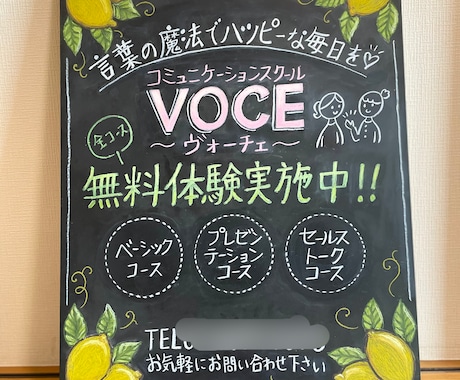 言葉の魔法でハッピーな毎日を♡
コミュニケーションスクール
VOCE
～ヴォーチェ～
全コース
無料体験実施中!!
ベーシック
コース
プレゼン
テーション
コース
セールス
トーク
コース
TEL
お気軽にお問い合わせ下さい